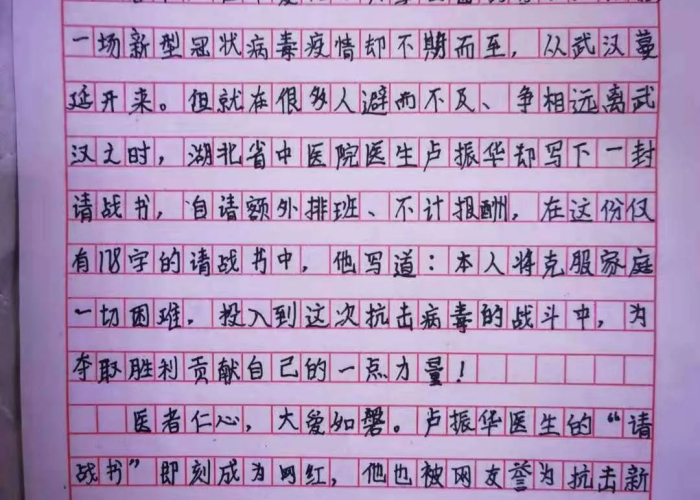 一场新型冠状病毒疫情却不期而至，从武汉蔓
延开来。但就在很多人避而不及、争相远离武
汉之时，湖北省中医院医生卢振华却写下一封
请战书，自请额外排班、不计报酬，在这份仅
有178字的请战书中，他写道：本人将克服家庭
一切困难，投入到这次抗击病毒的战斗中，为
夺取胜利贡献自己的一点力量！
医者仁心，大爱如磐。卢振华医生的“请
战书”即刻成为网红，他也被网友誉为抗击新